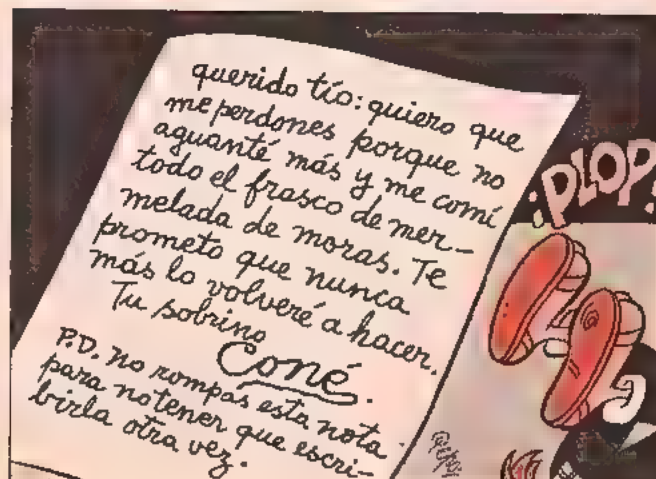 querido tío: quiero que
me perdones porque no
aguanté más y me comí
todo el frasco de mer-
melada de moras. Te
prometo que nunca
más lo volveré a hacer.
Tu sobrino
Coné.
P.D. no rompas esta nota
para no tener que escri-
birla otra vez.
¡PLOP!
Pepo